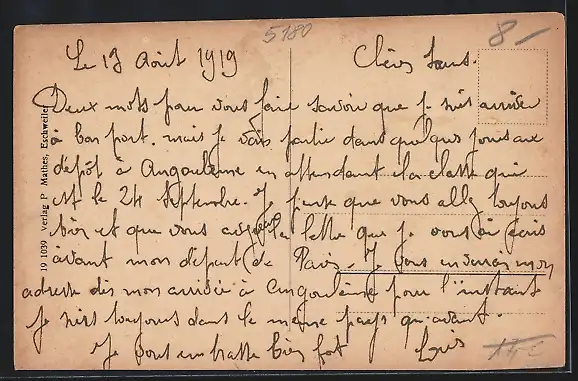 5780
8 –
Le 13 Août 1919
Chères Sœurs.
Deux mots pour vous faire savoir que je suis arrivée
à bon port. mais je vais partir dans quelques jours aux
dépôt à Angoulème en attendant la classe qui
est le 24 septembre. Je pense que vous allez toujours
bien et que vous avez la lettre que je vous ai écris
avant mon départ de Paris. Je vous enverrai mon
adresse dès mon arrivée à Angoulème pour l'instant
je suis toujours dans le meme pays qu'avant.
Je vous embrasse bien fort
Louis
19 1039 Verlag P. Mathes, Eschweiler